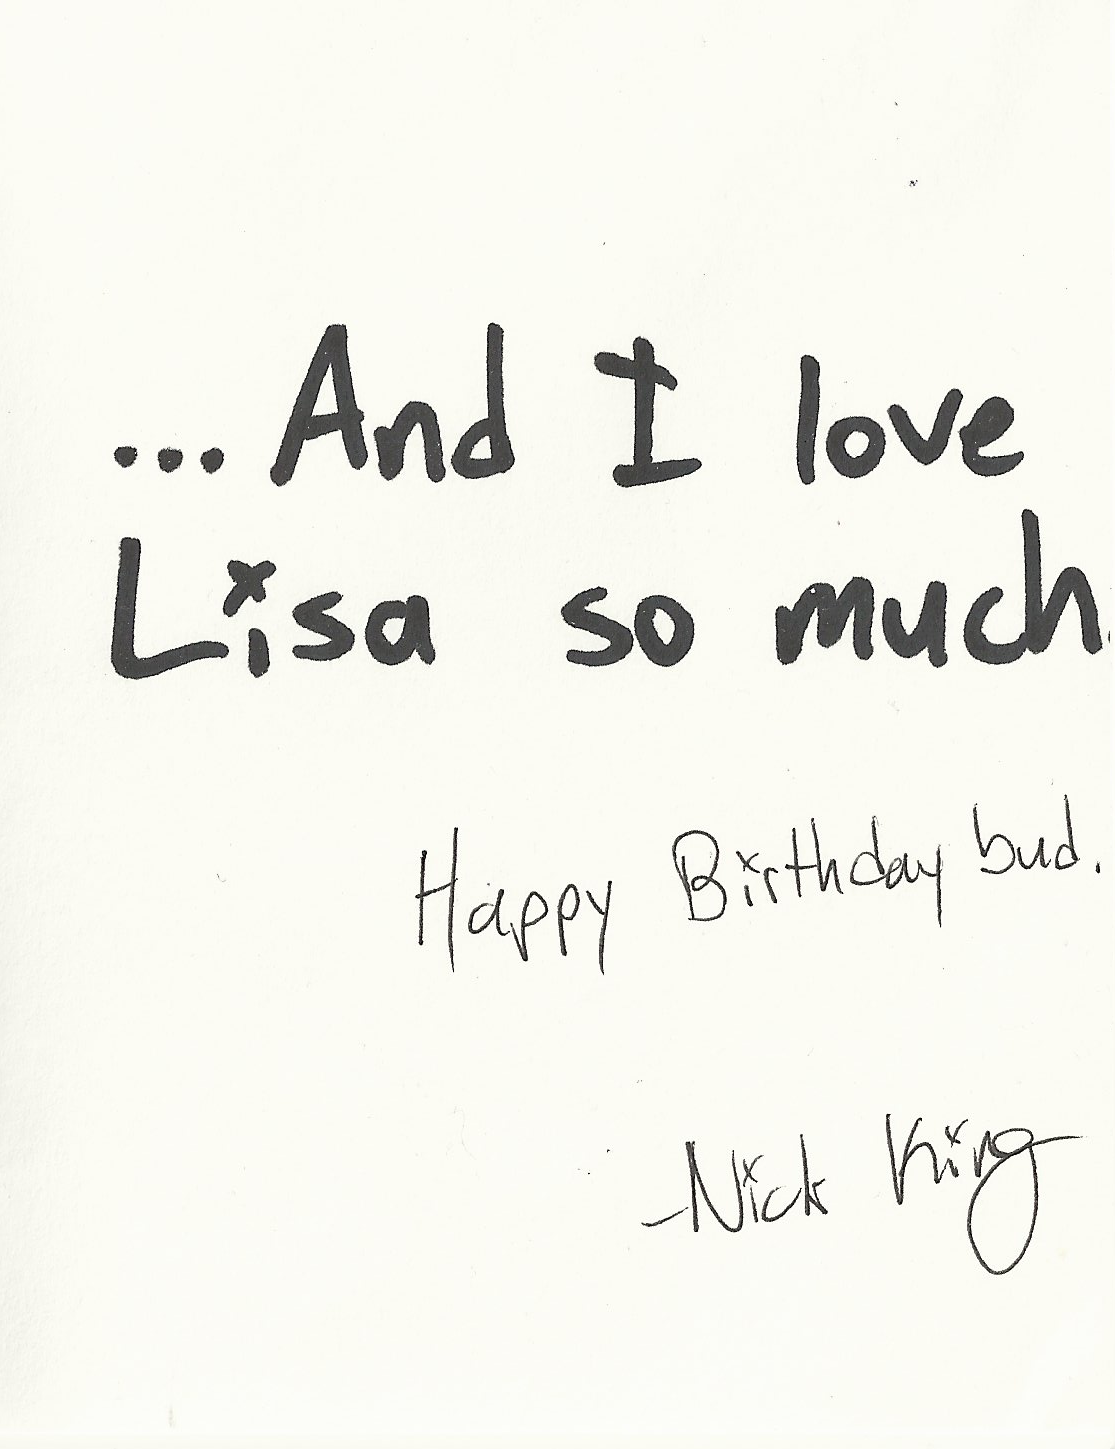 ...And I love
Lisa so much.
Happy Birthday bud.
-Nick King